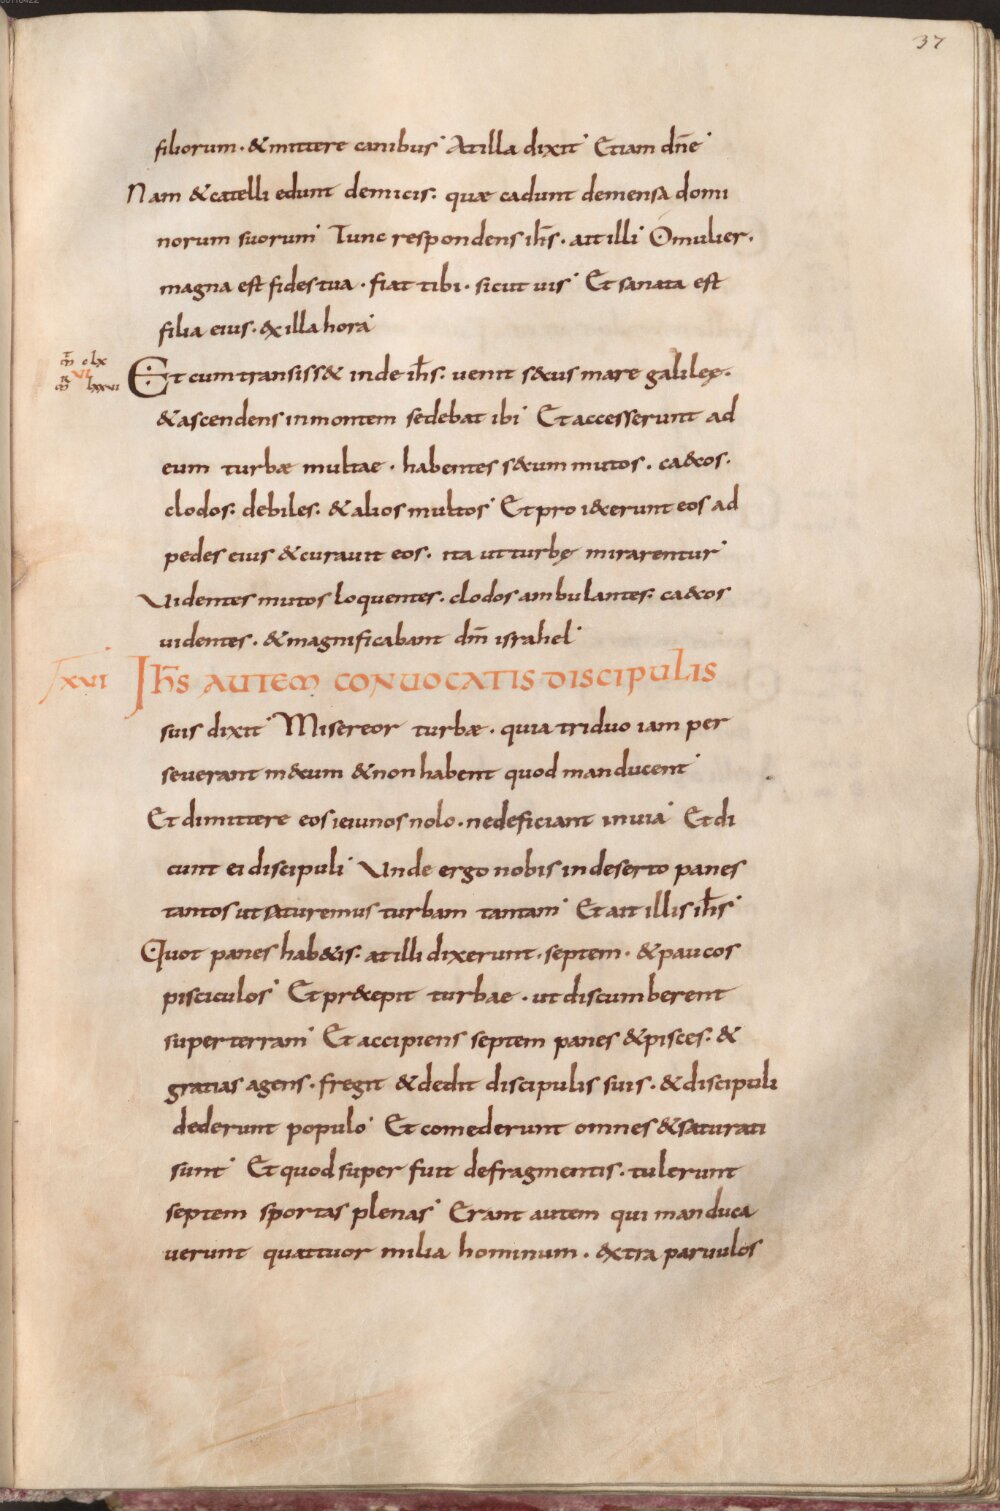 37
filiorum · & mittere canibus· At illa dixit· Etiam dn̄e·
Nam & catelli edunt de micis: quæ cadunt de mensa domi
norum suorum· Tunc respondens ih̄s · ait illi· O mulier ·
magna est fides tua · fiat tibi · sicut uis· Et sanata est
filia eius · & illa hora·
Et cum transiss& inde ih̄s · uenit s&us mare galileę ·
& ascendens in montem sedebat ibi· Et accesserunt ad
eum turbæ multae · habentes s&um mutos · ca&os ·
clodos: debiles: & alios multos· Et proi&erunt eos ad
pedes eius & curauit eos · ita ut turbę mirarentur·
Uidentes mutos loquentes · clodos ambulantes: ca&os
uidentes · & magnificabant dm̄ israhel·
xxvi Ih̄s AUTEM CONUOCATIS DISCIPULIS
suis dixit· Misereor turbæ · quia triduo iam per
seuerant m&um & non habent quod manducent·
Et dimittere eos ieiunos nolo · ne deficiant in uia· Et di
cunt ei discipuli· Unde ergo nobis in deserto panes
tantos ut saturemus turbam tantam· Et ait illis ih̄s·
Quot panes hab&is: at illi dixerunt · septem · & paucos
pisciculos· Et pr&epit turbae · ut discumberent
super terram· Et accipiens septem panes & pisces: &
gratias agens · fregit & dedit discipulis suis · & discipuli
dederunt populo· Et comederunt omnes & saturati
sunt· Et quod super fuit de fragmentis · tulerunt
septem sportas plenas· Erant autem qui manduca
uerunt quattuor milia hominum · &tra paruulos